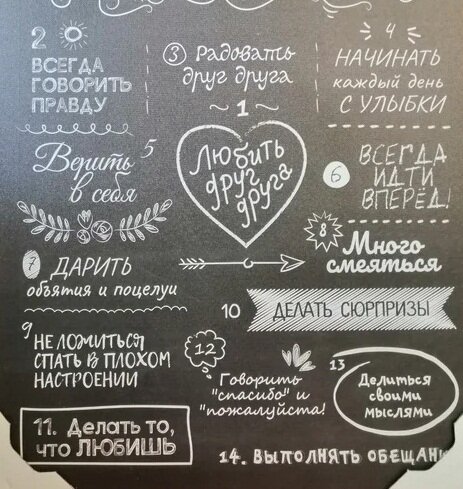 1
Любить
друг
друга
2
ВСЕГДА
ГОВОРИТЬ
ПРАВДУ
3 Радовать
друг друга
4
НАЧИНАТЬ
каждый день
С УЛЫБКИ
5
Верить
в себя
6
ВСЕГДА
ИДТИ
ВПЕРЁД!
7 ДАРИТЬ
объятия и поцелуи
8
Много
смеяться
9
НЕ ЛОЖИТЬСЯ
СПАТЬ В ПЛОХОМ
НАСТРОЕНИИ
10 ДЕЛАТЬ СЮРПРИЗЫ
11. Делать то,
что ЛЮБИШЬ
12
Говорить
"спасибо" и
"пожалуйста!
13
Делиться
своими
мыслями
14. ВЫПОЛНЯТЬ ОБЕЩАН